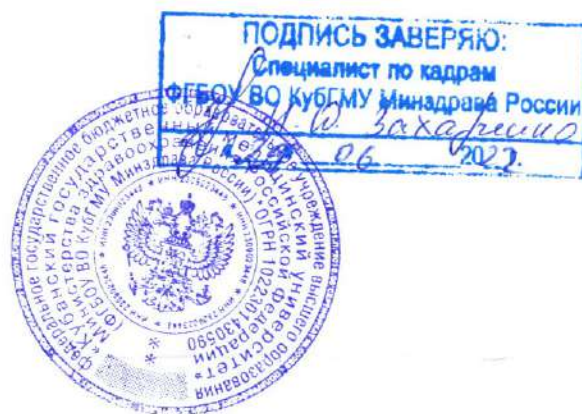 ПОДПИСЬ ЗАВЕРЯЮ:
Специалист по кадрам
ФГБОУ ВО КубГМУ Минздрава России
06 2022
Федеральное государственное бюджетное образовательное учреждение высшего образования
«Кубанский государственный медицинский университет»
Министерства здравоохранения Российской Федерации
(ФГБОУ ВО КубГМУ Минздрава России) * ОГРН 1022301430590